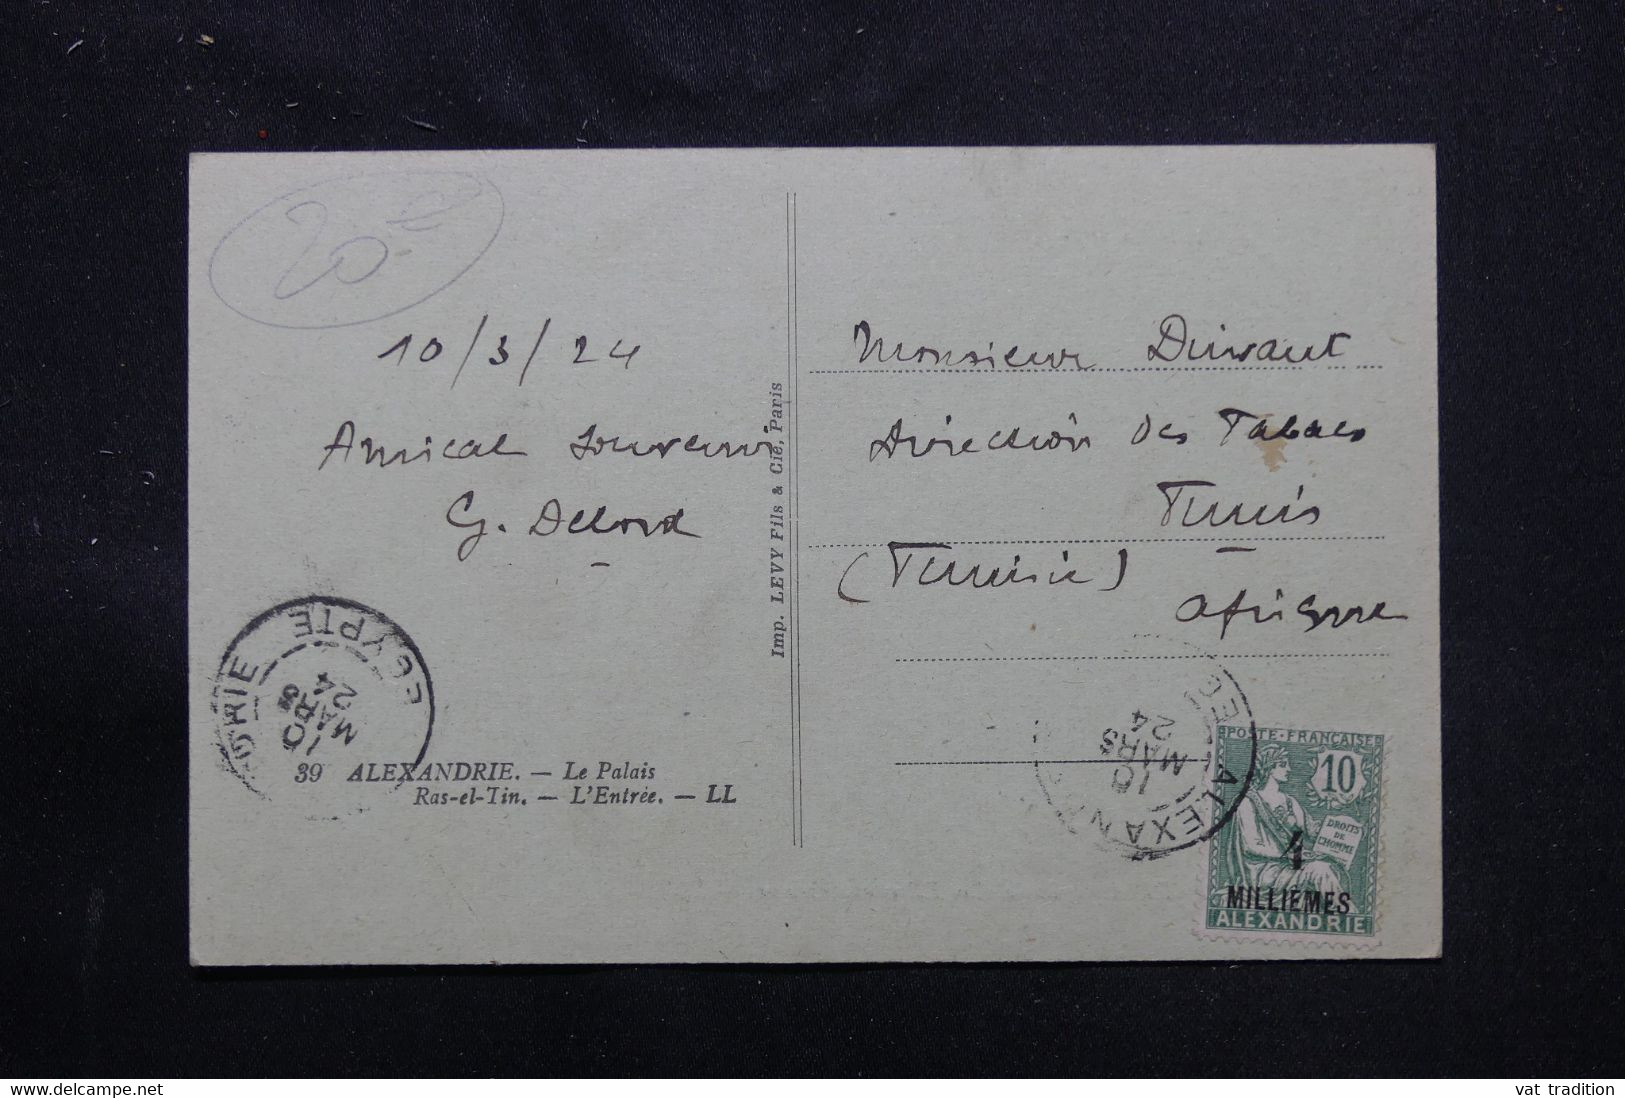 20 €
10/3/24
Amical souvenir
G. Delord
Monsieur
Direction des Tabacs
Tunis
(Tunisie)
Afrique
Imp. LEVY Fils & Cie, Paris
EGYPTE
DRIE
10
MARS
24
39 ALEXANDRIE. — Le Palais
Ras-el-Tin. — L'Entrée. — LL
ALEXAN
10
MARS
24
POSTE-FRANÇAISE
10
DROITS
DE
L'HOMME
4
MILLIEMES
ALEXANDRIE
www.delcampe.net
vat tradition